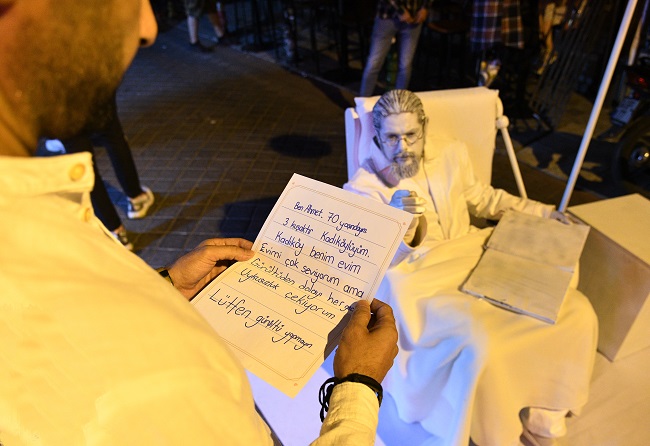 Ben Ahmet 70 yaşındayım
3. kuşaktır Kadıköylüyüm.
Kadıköy benim evim
Evimi çok seviyorum ama
Gürültüden dolayı her
Uykusuzluk çekiyorum
Lütfen gürültü yapmayın